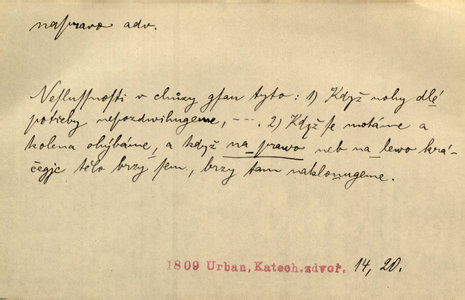 napravo adv.
Neslussnosti v chůzy gsau tyto: 1) Když nohy dlé
potřeby nepozdwihugeme, - - -. 2) Když se motáme a
kolena ohýbáme, a když na prawo neb na lewo krá-
čegjc tělo brzy sem, brzy tam naklonugeme.
1809 Urban, Katech. zdvoř. 14, 20.